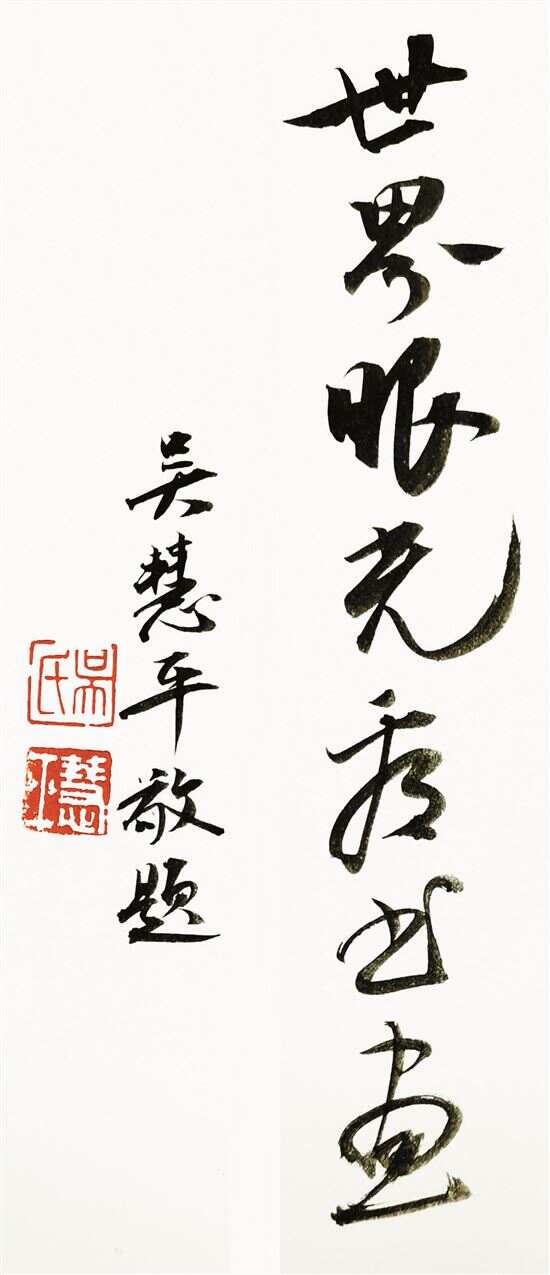 世界眼光看书画
吴慧平敬题
吴氏
慧平